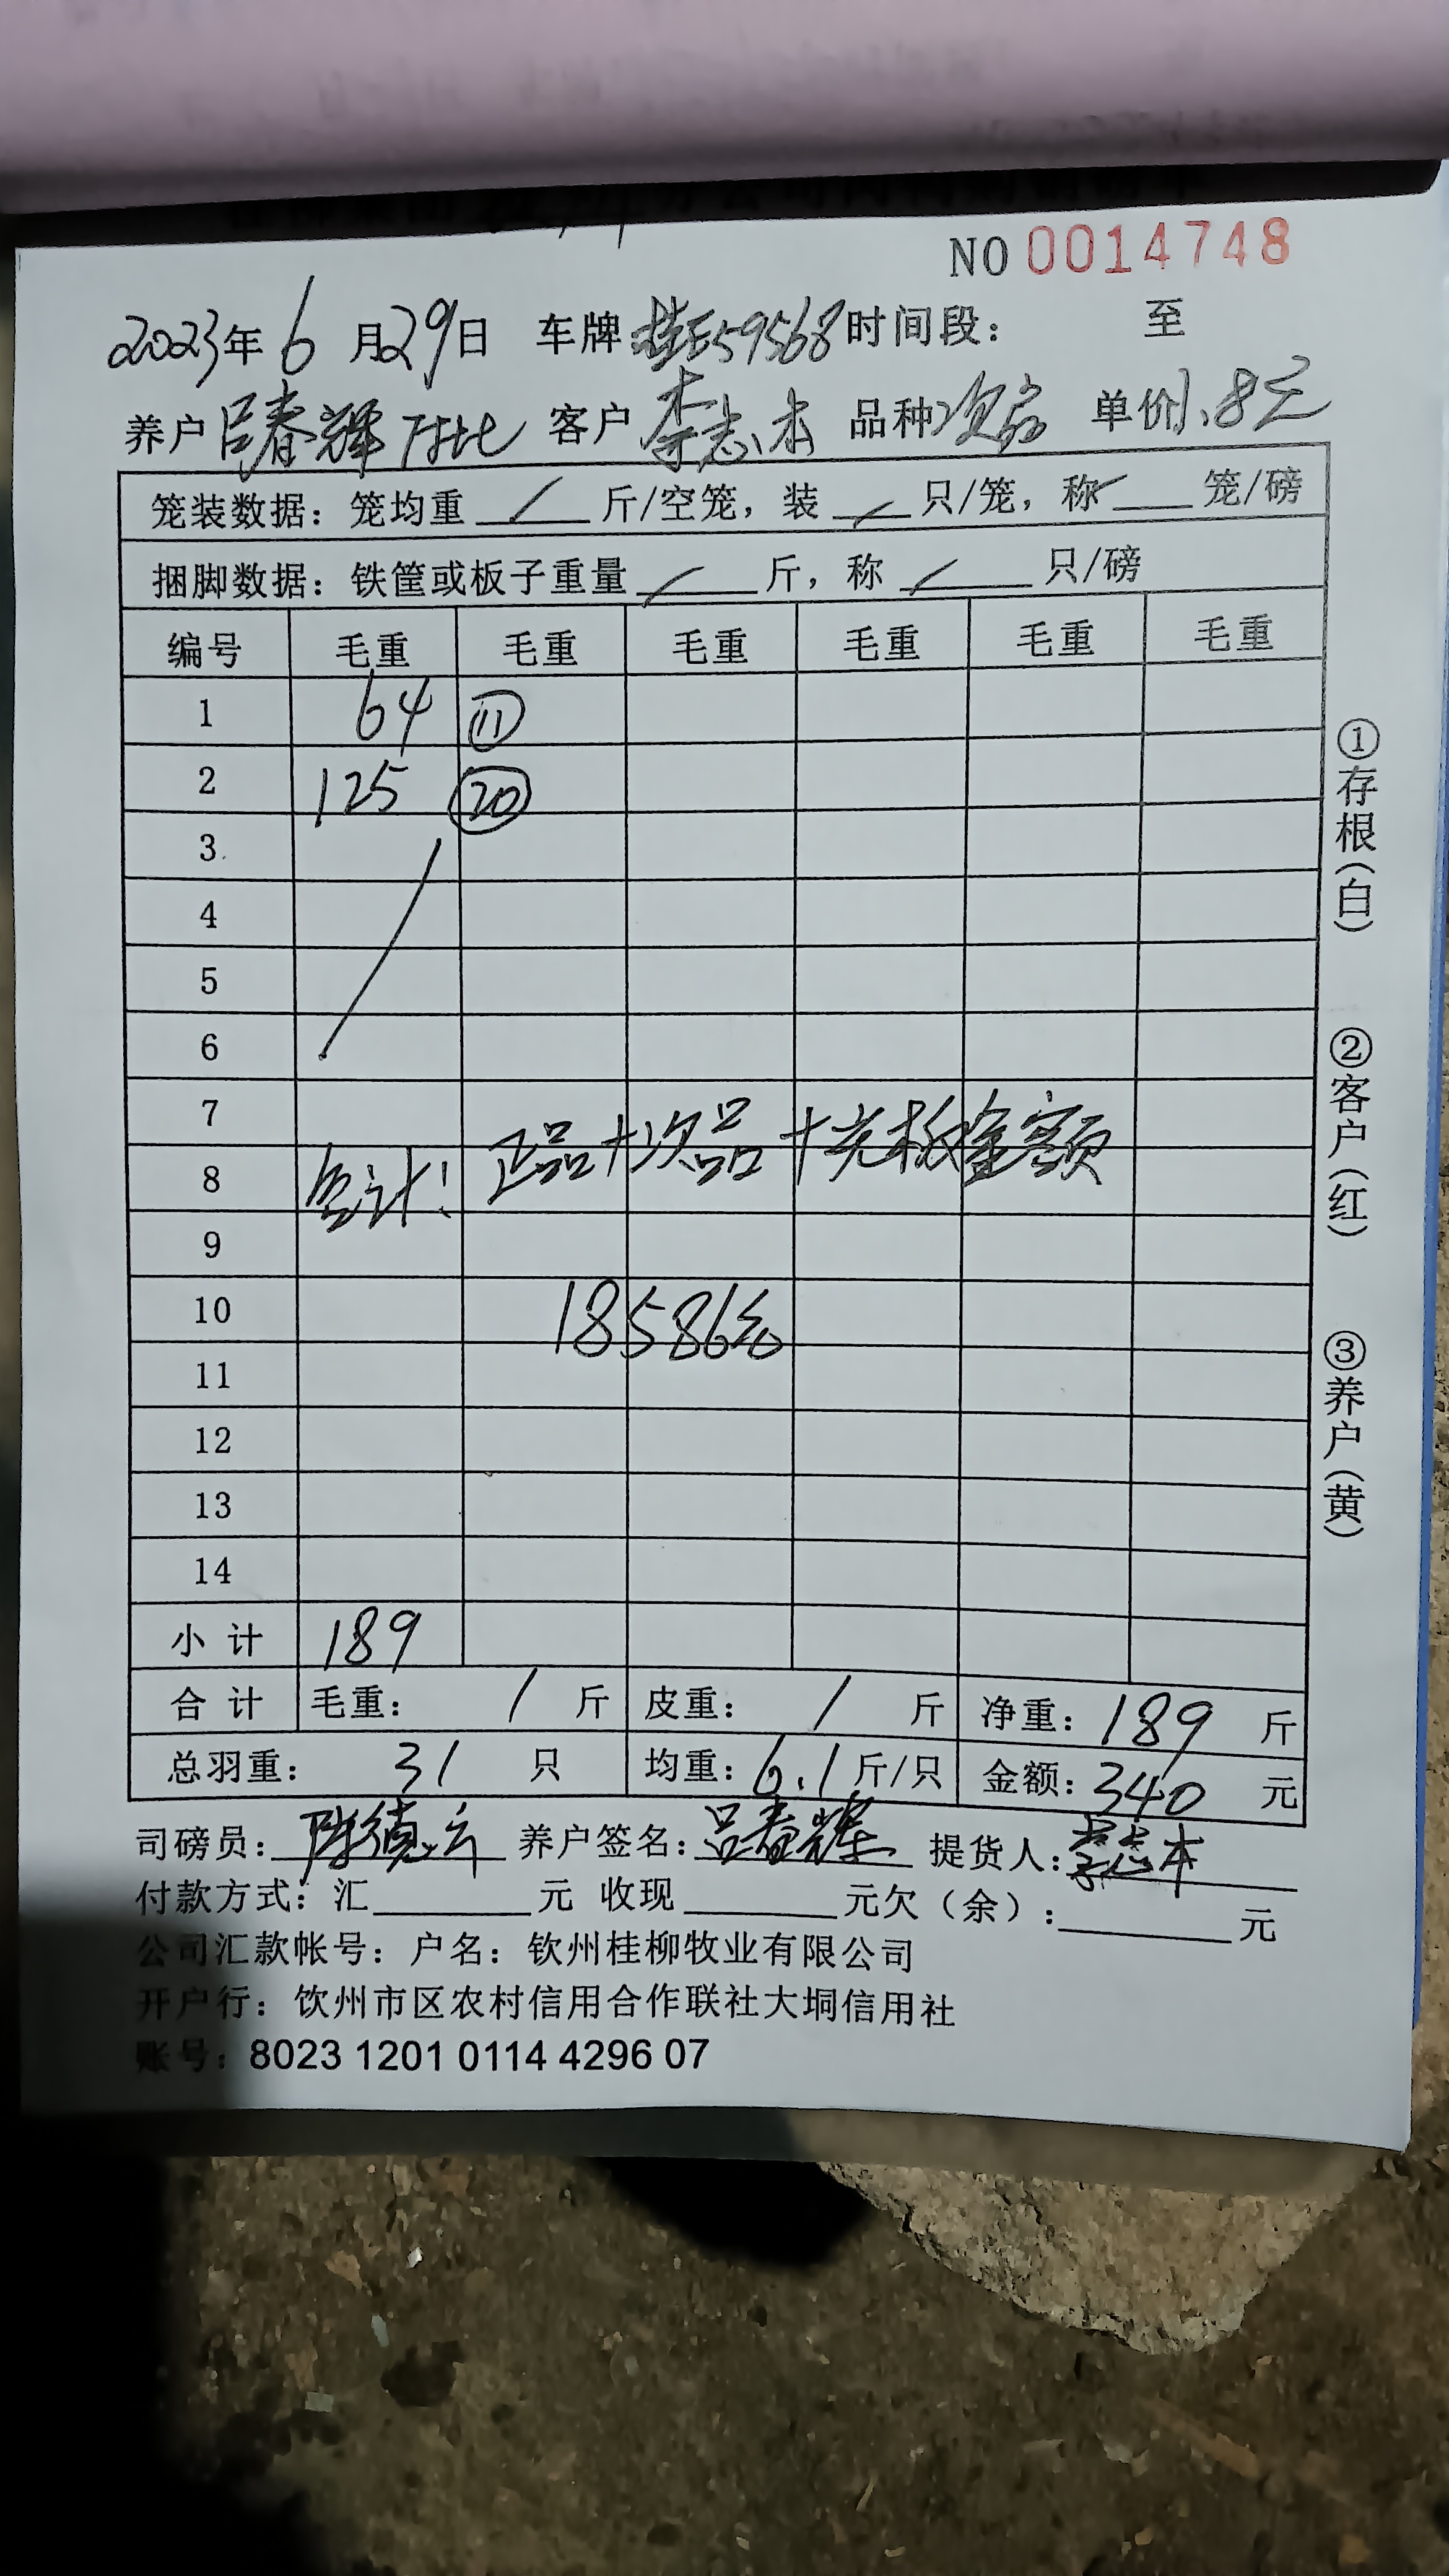 NO 0014748
2023年6月29日 车牌 桂E59568 时间段： 至
养户 吕春辉 客户 李志本 品种 次品 单价 1.8元
笼装数据：笼均重 / 斤/空笼，装 / 只/笼，称 / 笼/磅
捆脚数据：铁筐或板子重量 / 斤，称 / 只/磅
编号 毛重 毛重 毛重 毛重 毛重 毛重
1 64 ⑪
2 125 ⑳
3
4
5
6
7
8 合计: 正品+次品+光板金额
9
10 18586元
11
12
13
14
小计 189
合计 毛重： / 斤 皮重： / 斤 净重：189 斤
总羽重： 31 只 均重：6.1斤/只 金额：340 元
司磅员： 养户签名：吕春辉 提货人：李志本
付款方式：汇 元 收现 元欠（余）: 元
公司汇款帐号：户名：钦州桂柳牧业有限公司
开户行：饮州市区农村信用合作联社大垌信用社
账号：8023 1201 0114 4296 07
①存根(白)
②客户(红)
③养户(黄)